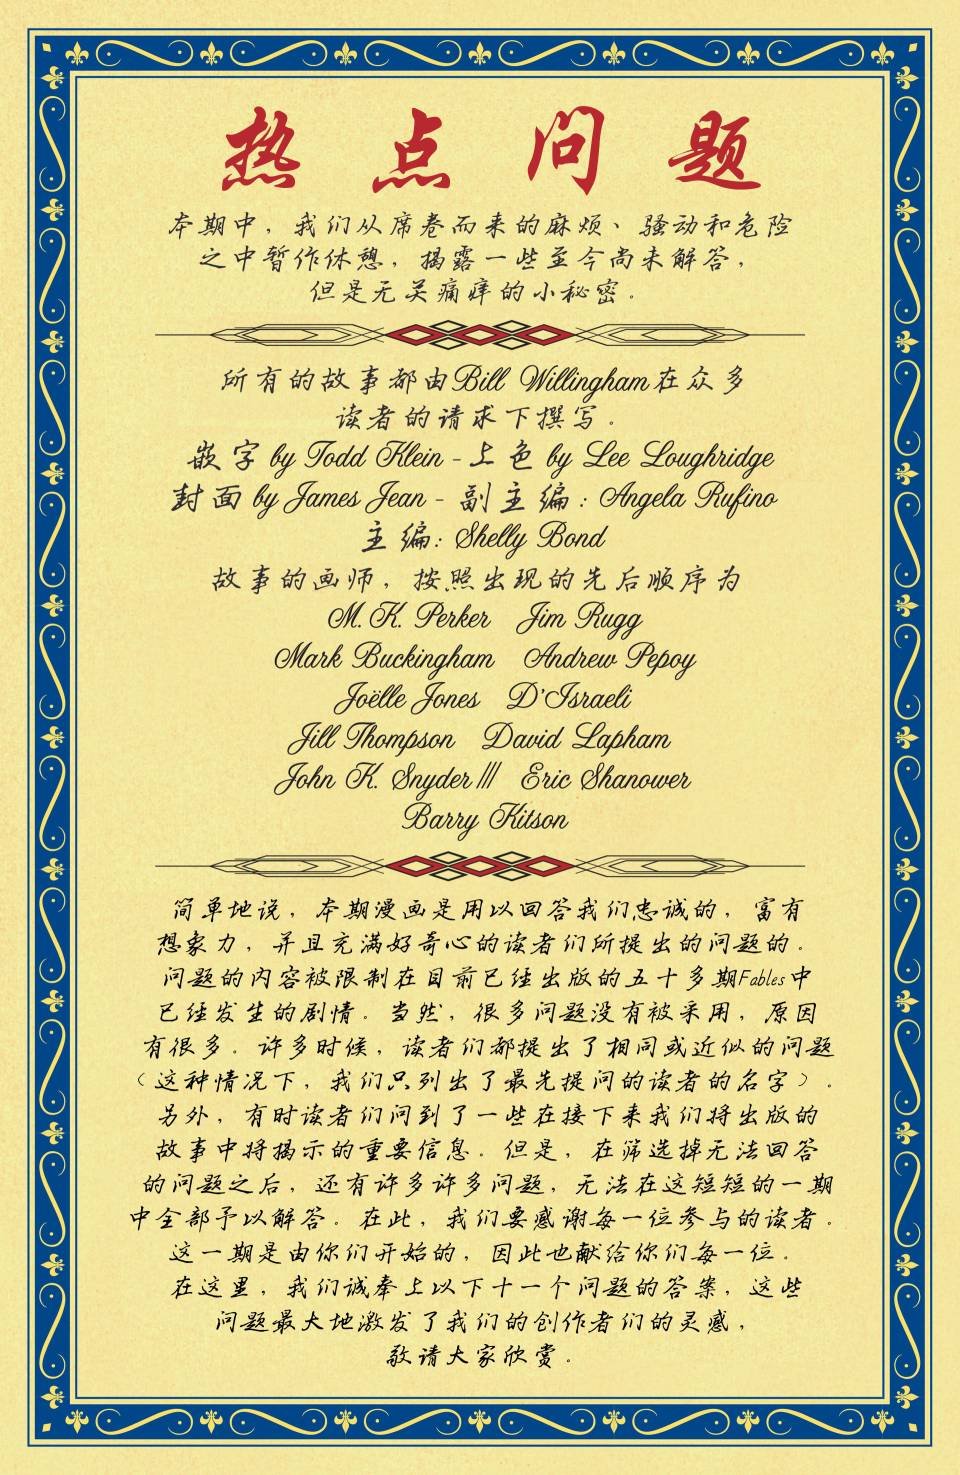 热点问题
本期中，我们从席卷而来的麻烦、骚动和危险
之中暂作休憩，揭露一些至今尚未解答，
但是无关痛痒的小秘密。
所有的故事都由Bill Willingham在众多
读者的请求下撰写。
嵌字 by Todd Klein - 上色 by Lee Loughridge
封面 by James Jean - 副主编：Angela Rufino
主编: Shelly Bond
故事的画师，按照出现的先后顺序为
M. K. Perker Jim Rugg
Mark Buckingham Andrew Pepoy
Joëlle Jones D'Israeli
Jill Thompson David Lapham
John K. Snyder III Eric Shanower
Barry Kitson
简单地说，本期漫画是用以回答我们忠诚的，富有
想象力，并且充满好奇心的读者们所提出的问题的。
问题的内容被限制在目前已经出版的五十多期Fables中
已经发生的剧情。当然，很多问题没有被采用，原因
有很多。许多时候，读者们都提出了相同或近似的问题
（这种情况下，我们只列出了最先提问的读者的名字）.
另外，有时读者们问到了一些在接下来我们将出版的
故事中将揭示的重要信息。但是，在筛选掉无法回答
的问题之后，还有许多许多问题，无法在这短短的一期
中全部予以解答。在此，我们要感谢每一位参与的读者。
这一期是由你们开始的，因此也献给你们每一位。
在这里，我们诚奉上以下十一个问题的答案，这些
问题最大地激发了我们的创作者们的灵感，
敬请大家欣赏。